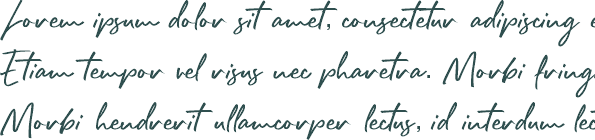 Lorem ipsum dolor sit amet, consectetur adipiscing e
Etiam tempor vel risus nec pharetra. Morbi fring
Morbi hendrerit ullamcorper lectus, id interdum lec